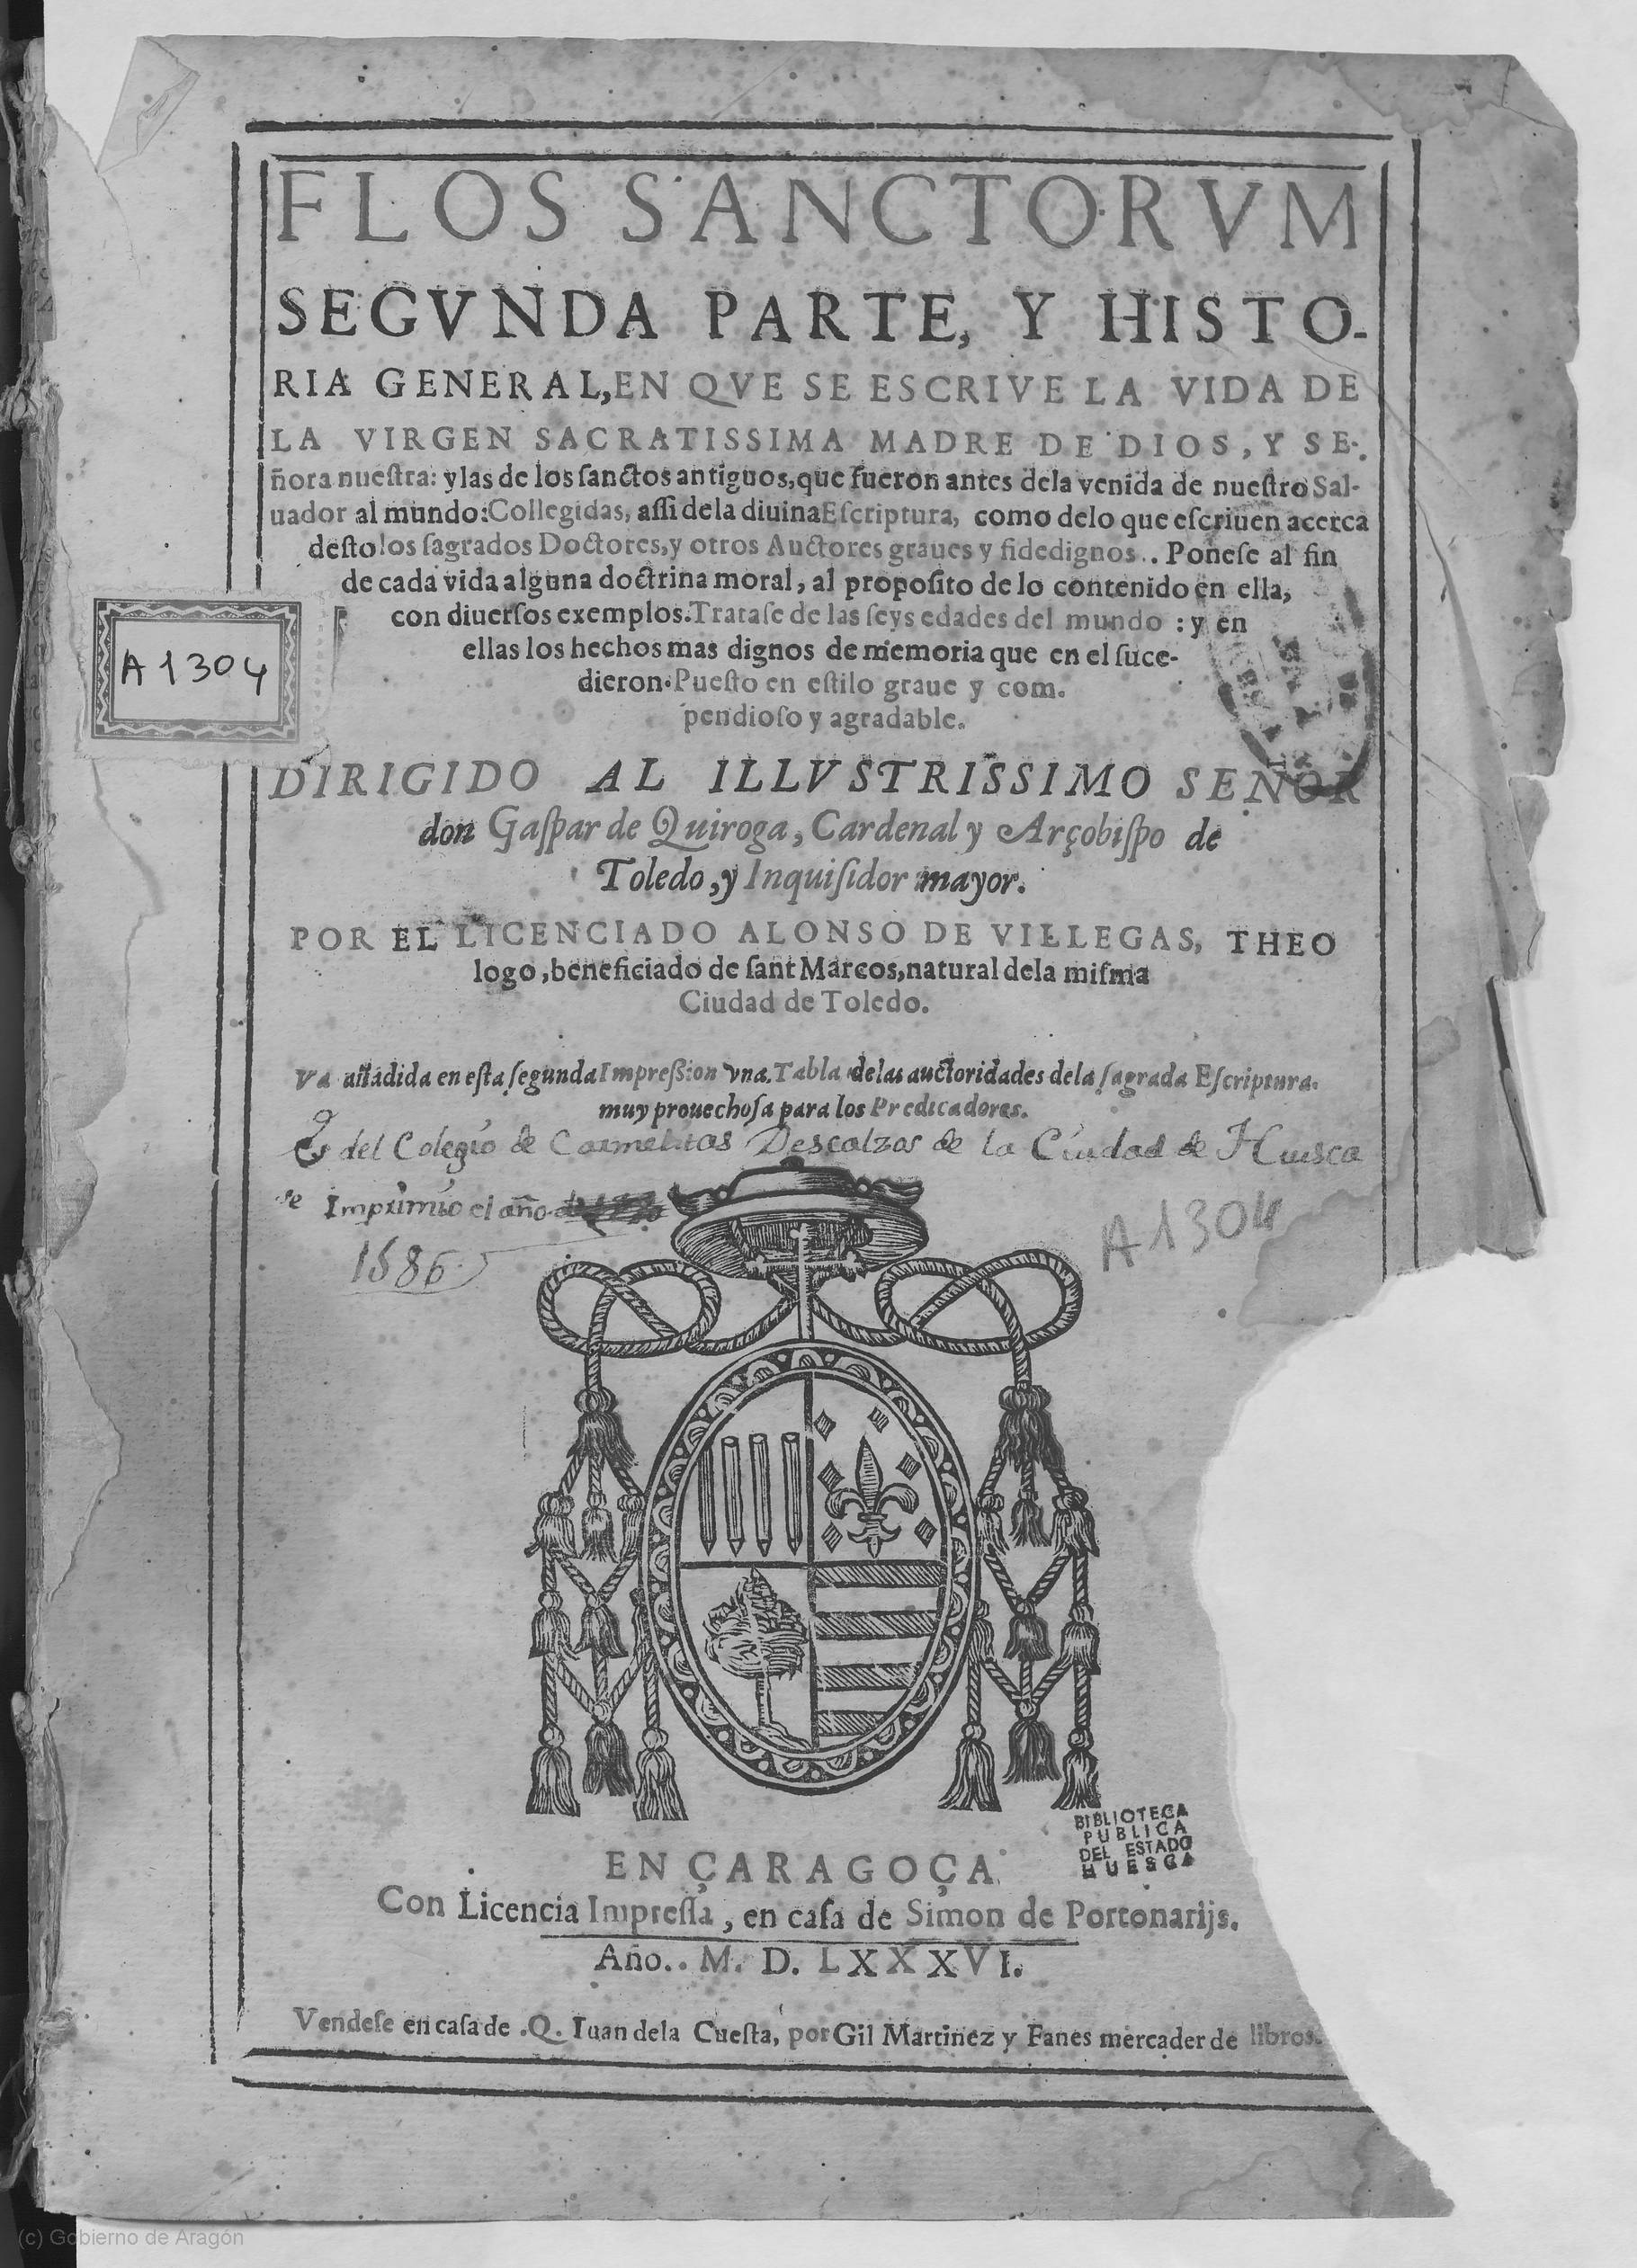 FLOS SANCTORVM
SEGVNDA PARTE, Y HISTO-
RIA GENERAL, EN QVE SE ESCRIVE LA VIDA DE
LA VIRGEN SACRATISSIMA MADRE DE DIOS, Y SE-
ñora nueſtra: y las de los ſanctos antiguos, que fueron antes dela venida de nueſtro Sal-
uador al mundo: Collegidas, aſſi dela diuina Eſcriptura, como delo que eſcriuen acerca
deſto los ſagrados Doctores, y otros Auctores graues y fidedignos.. Poneſe al fin
de cada vida alguna doctrina moral, al propoſito de lo contenido en ella,
con diuerſos exemplos. Trataſe de las ſeys edades del mundo : y en
ellas los hechos mas dignos de memoria que en el ſuce-
dieron. Pueſto en eſtilo graue y com.
pendioſo y agradable.
A 1304
DIRIGIDO AL ILLVSTRISSIMO SEÑOR
don Gaſpar de Quiroga, Cardenal y Arçobiſpo de
Toledo, y Inquiſidor mayor.
POR EL LICENCIADO ALONSO DE VILLEGAS, THEO
logo, beneficiado de ſant Marcos, natural dela miſma
Ciudad de Toledo.
Va añadida en eſta ſegunda Impreßion vna Tabla delas auctoridades dela ſagrada Eſcriptura.
muy prouechoſa para los Predicadores.
Es del Colegio de Carmelitas Descalzos de la Ciudad de Huesca
se Imprimio el año de
1586
A 1304
BIBLIOTECA
PUBLICA
DEL ESTADO
HUESCA
EN ÇARAGOÇA
Con Licencia Impreſſa, en caſa de Simon de Portonarijs.
Año.. M. D. LXXXVI.
Vendeſe en caſa de .Q. Iuan dela Cueſta, por Gil Martinez y Fanes mercader de libros.
(c) Gobierno de Aragón